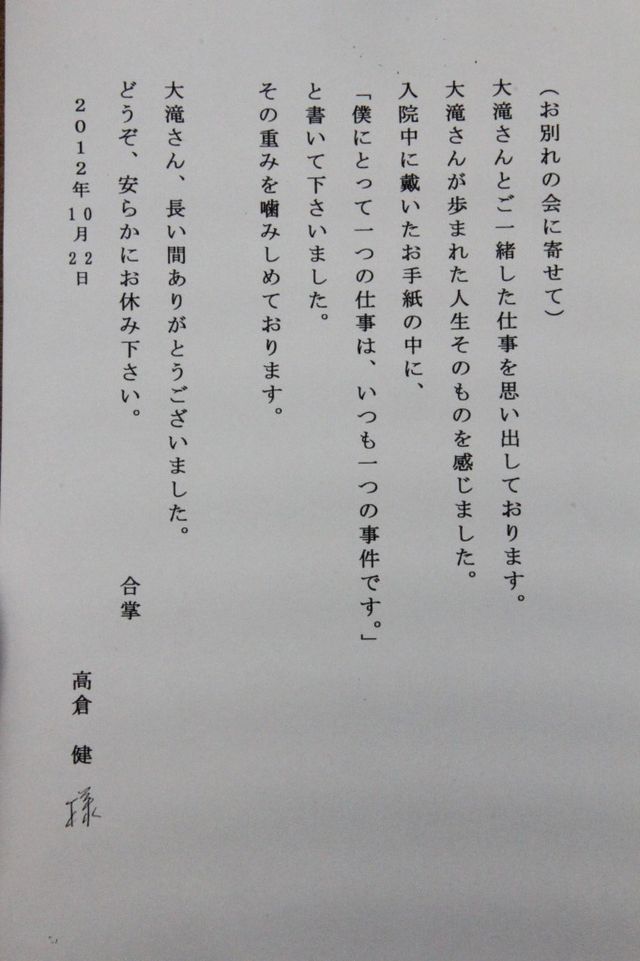 (お別れの会に寄せて)
大滝さんとご一緒した仕事を思い出しております。
大滝さんが歩まれた人生そのものを感じました。
入院中に戴いたお手紙の中に、
「僕にとって一つの仕事は、いつも一つの事件です。」
と書いて下さいました。
その重みを噛みしめております。
大滝さん、長い間ありがとうございました。
どうぞ、安らかにお休み下さい。
合掌
2012年10月22日
高倉 健 様